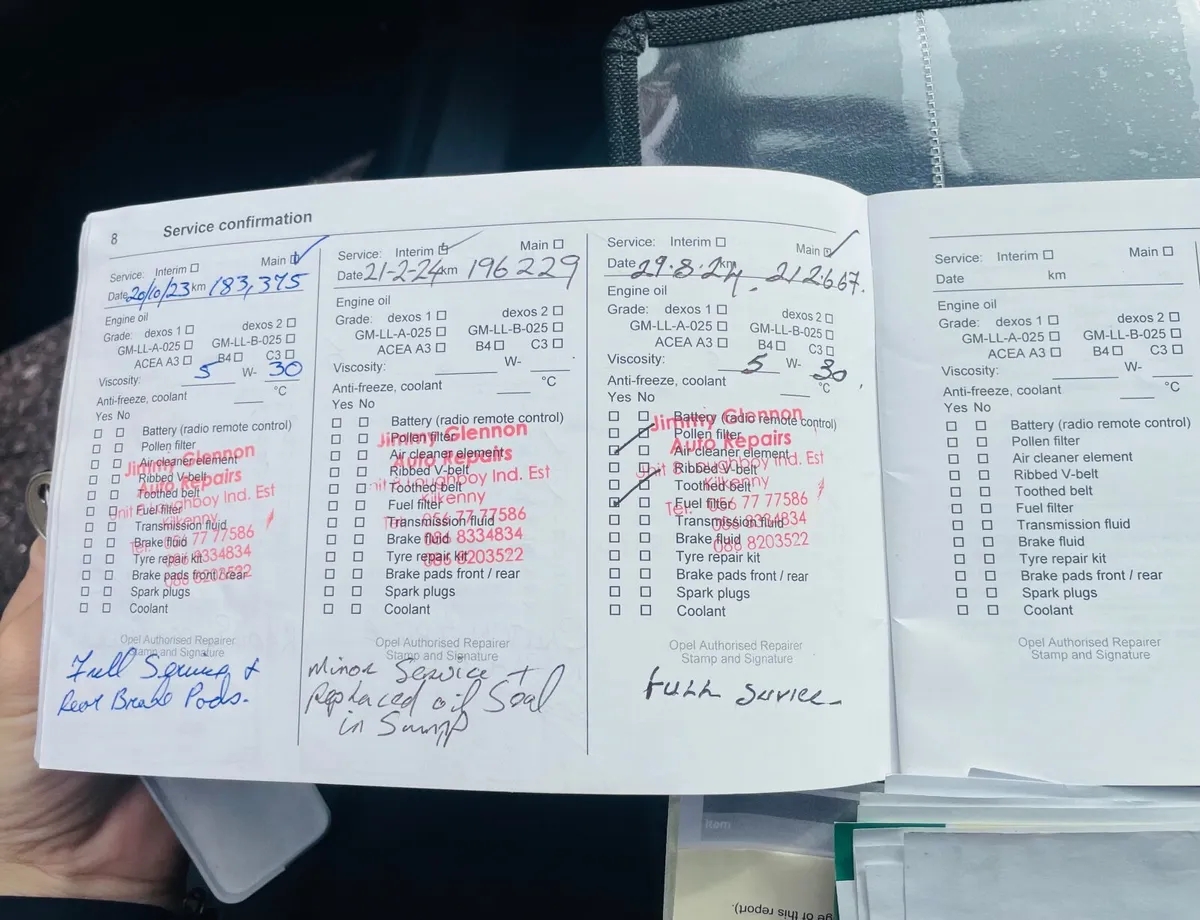 8 Service confirmation
Service: Interim Main
Date 20/10/23 km 183,375
Engine oil
Grade: dexos 1 dexos 2
GM-LL-A-025 GM-LL-B-025
ACEA A3 B4 C3
Viscosity: 5 W- 30
Anti-freeze, coolant °C
Yes No
Battery (radio remote control)
Pollen filter
Air cleaner element
Ribbed V-belt
Toothed belt
Fuel filter
Transmission fluid
Brake fluid
Tyre repair kit
Brake pads front / rear
Spark plugs
Coolant
Jimmy Glennon
Auto Repairs
Unit 8 Loughboy Ind. Est
Kilkenny
Tel: 056 77 77586
086 8334834
088 8203522
Opel Authorised Repairer
Stamp and Signature
Full Service &
Rear Brake Pads.
Service: Interim Main
Date 21-2-24 km 196229
Engine oil
Grade: dexos 1 dexos 2
GM-LL-A-025 GM-LL-B-025
ACEA A3 B4 C3
Viscosity: W-
Anti-freeze, coolant °C
Yes No
Battery (radio remote control)
Pollen filter
Air cleaner element
Ribbed V-belt
Toothed belt
Fuel filter
Transmission fluid
Brake fluid
Tyre repair kit
Brake pads front / rear
Spark plugs
Coolant
Jimmy Glennon
Auto Repairs
Unit 8 Loughboy Ind. Est
Kilkenny
056 77 77586
086 8334834
088 8203522
Opel Authorised Repairer
Stamp and Signature
Minor Service +
Replaced oil Seal
in Sump
Service: Interim Main
Date 29.8.24. km 212667.
Engine oil
Grade: dexos 1 dexos 2
GM-LL-A-025 GM-LL-B-025
ACEA A3 B4 C3
Viscosity: 5 W- 30
Anti-freeze, coolant °C
Yes No
Battery (radio remote control)
Pollen filter
Air cleaner element
Ribbed V-belt
Toothed belt
Fuel filter
Transmission fluid
Brake fluid
Tyre repair kit
Brake pads front / rear
Spark plugs
Coolant
Jimmy Glennon
Auto Repairs
Unit 8 Loughboy Ind. Est
Kilkenny
Tel: 056 77 77586
086 8334834
088 8203522
Opel Authorised Repairer
Stamp and Signature
Full Service
Service: Interim Main
Date km
Engine oil
Grade: dexos 1 dexos 2
GM-LL-A-025 GM-LL-B-025
ACEA A3 B4 C3
Viscosity: W-
Anti-freeze, coolant °C
Yes No
Battery (radio remote control)
Pollen filter
Air cleaner element
Ribbed V-belt
Toothed belt
Fuel filter
Transmission fluid
Brake fluid
Tyre repair kit
Brake pads front / rear
Spark plugs
Coolant
Opel Authorised Repairer
Stamp and Signature
Item
ge of this report).